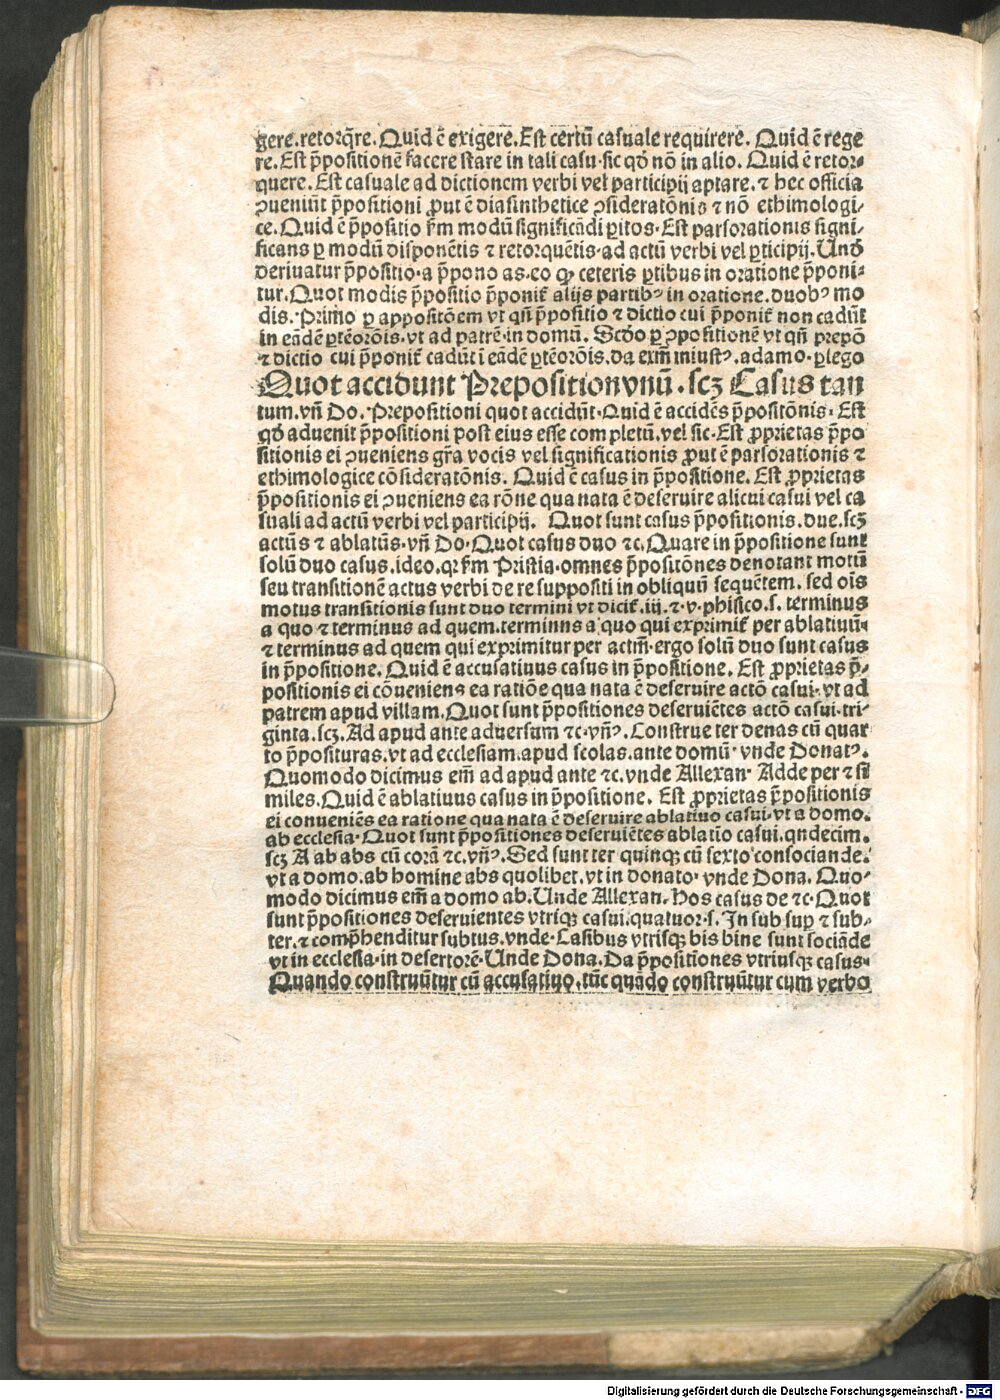 gere.retorq̃re. Quid ẽ exigere. Est certũ casuale requirere. Quid ẽ rege
re. Est p̃positionẽ facere stare in tali casu·sic qđ nõ in alio. Quid ẽ retor⸗
quere. Est casuale ad dictionem verbi vel participij aptare. ⁊ hec officia
ꝯueniũt p̃positioni ꝓut ẽ diasinthetice ꝯsideratõnis ⁊ nõ ethimologi⸗
ce. Quid ẽ p̃positio ẜm modũ significãdi ꝑitos· Est parsorationis signi⸗
ficans ꝑ modũ disponẽtis ⁊ retorquẽtis·ad actũ verbi vel ꝑticipij. Unđ
deriuatur p̃positio·a p̃pono as.eo ꝙ ceteris ꝑtibus in oratione p̃poni⸗
tur. Quot modis p̃positio p̃ponit̃ alijs partibꝰ in oratione.duobꝰ mo
dis. Primo ꝑ appositõem vt qñ p̃positio ⁊ dictio cui p̃ponit̃ non cadũt
in eãdẽ ꝑtẽorõis.vt ad patrẽ·in domũ. Scđo ꝑ ꝯpositionẽ vt qñ prepõ
⁊ dictio cui p̃ponit̃ cadũt ĩ eãdẽ ꝑtẽorõis.da exm̃ iniustꝰ.adamo·ꝑlego
Quot accidunt Prepositioni vnũ.scꝫ Casus tan
tum.vñ Do. Prepositioni quot accidũt·Quid ẽ accidẽs p̃positõnis· Est
qđ aduenit p̃positioni post eius esse completũ.vel sic·Est ꝓprietas p̃po
sitionis ei ꝯueniens gr̃a vocis vel significationis ꝓut ẽ parsorationis ⁊
ethimologice cõsideratõnis. Quid ẽ casus in p̃positione. Est ꝓprietas
p̃positionis ei ꝯueniens ea rõne qua nata ẽ deseruire alicui casui vel ca
suali ad actũ verbi vel participij. Quot sunt casus p̃positionis.due.scꝫ
actũs ⁊ ablatũs·vñ Do·Quot casus duo ⁊c. Quare in p̃positione sunt
solũ duo casus.ideo.qꝛ ẜm Pristia·omnes p̃positõnes denotant motũ
seu transitionẽ actus verbi de re suppositi in obliquũ sequẽtem. sed oĩs
motus transitionis sunt duo termini vt dicit̃ .iij.⁊.v.phisico.s. terminus
a quo ⁊ terminus ad quem.terminns a quo qui exprimit̃ per ablatiuũ⸗
⁊ terminus ad quem qui exprimitur per actm̃·ergo solũ duo sunt casus
in p̃positione. Quid ẽ accusatiuus casus in p̃positione. Est ꝓprietas p̃⸗
positionis ei cõueniens ea ratiõe qua nata ẽ deseruire actõ casui·vt ad
patrem apud villam. Quot sunt p̃positiones deseruiẽtes actõ casui·tri⸗
ginta.scꝫ. Ad apud ante aduersum ⁊c·vñꝰ. Construe ter denas cũ quar
to p̃posituras.vt ad ecclesiam.apud scolas.ante domũ· vnde Donatꝰ.
Quomodo dicimus em̃ ad apud ante ⁊c.vnde Allexan· Adde per ⁊ si
miles. Quid ẽ ablatiuus casus in p̃positione. Est ꝓprietas p̃positionis
ei conueniẽs ea ratione qua nata ẽ deseruire ablatiuo casui·vt a domo.
ab ecclesia· Quot sunt p̃positiones deseruiẽtes ablatĩo casui.qndecim.
scꝫ A ab abs cũ corã ⁊c.vñꝰ. Sed sunt ter quinqꝫ cũ sexto consociande.
vt a domo.ab homine abs quolibet.vt in donato·vnde Dona. Quo⸗
modo dicimus em̃ a domo ab. Unde Allexan. Hos casus de ⁊c·Quot
sunt p̃positiones deseruientes vtriqꝫ casui.quatuor·s. In sub suꝑ ⁊ sub⸗
ter.⁊ comp̃henditur subtus.vnde· Casibus vtrisqꝫ bis bine sunt sociãde
vt in ecclesia·in desertorẽ·Unde Dona. Da p̃positiones vtriusqꝫ casus·
Quando construũtur cũ accusatiuo.tũc quãdo construũtur cum verbo
Digitalisierung gefördert durch die Deutsche Forschungsgemeinschaft - DFG